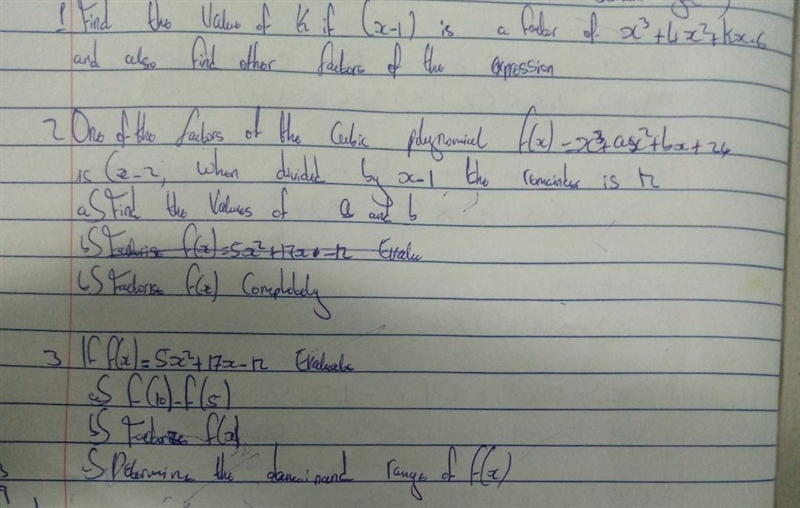 1 Find the Value of K if (x-1) is a factor of x³+4x²+Kx-6
and also find other factors of the expression
2 One of the factors of the Cubic polynomial f(x)=x³+ax²+bx+24
is (x-2, when divided by x-1 the remainder is 12
a) Find the Values of a and b
b) Factorise f(x)=5x²+17x-12 Evalu
b) Factorise f(x) Completely
3 If f(x)=5x²+17x-12 Evaluate
a) f(10)-f(5)
b) Factorise f(x)
c) Determine the domain and range of f(x)